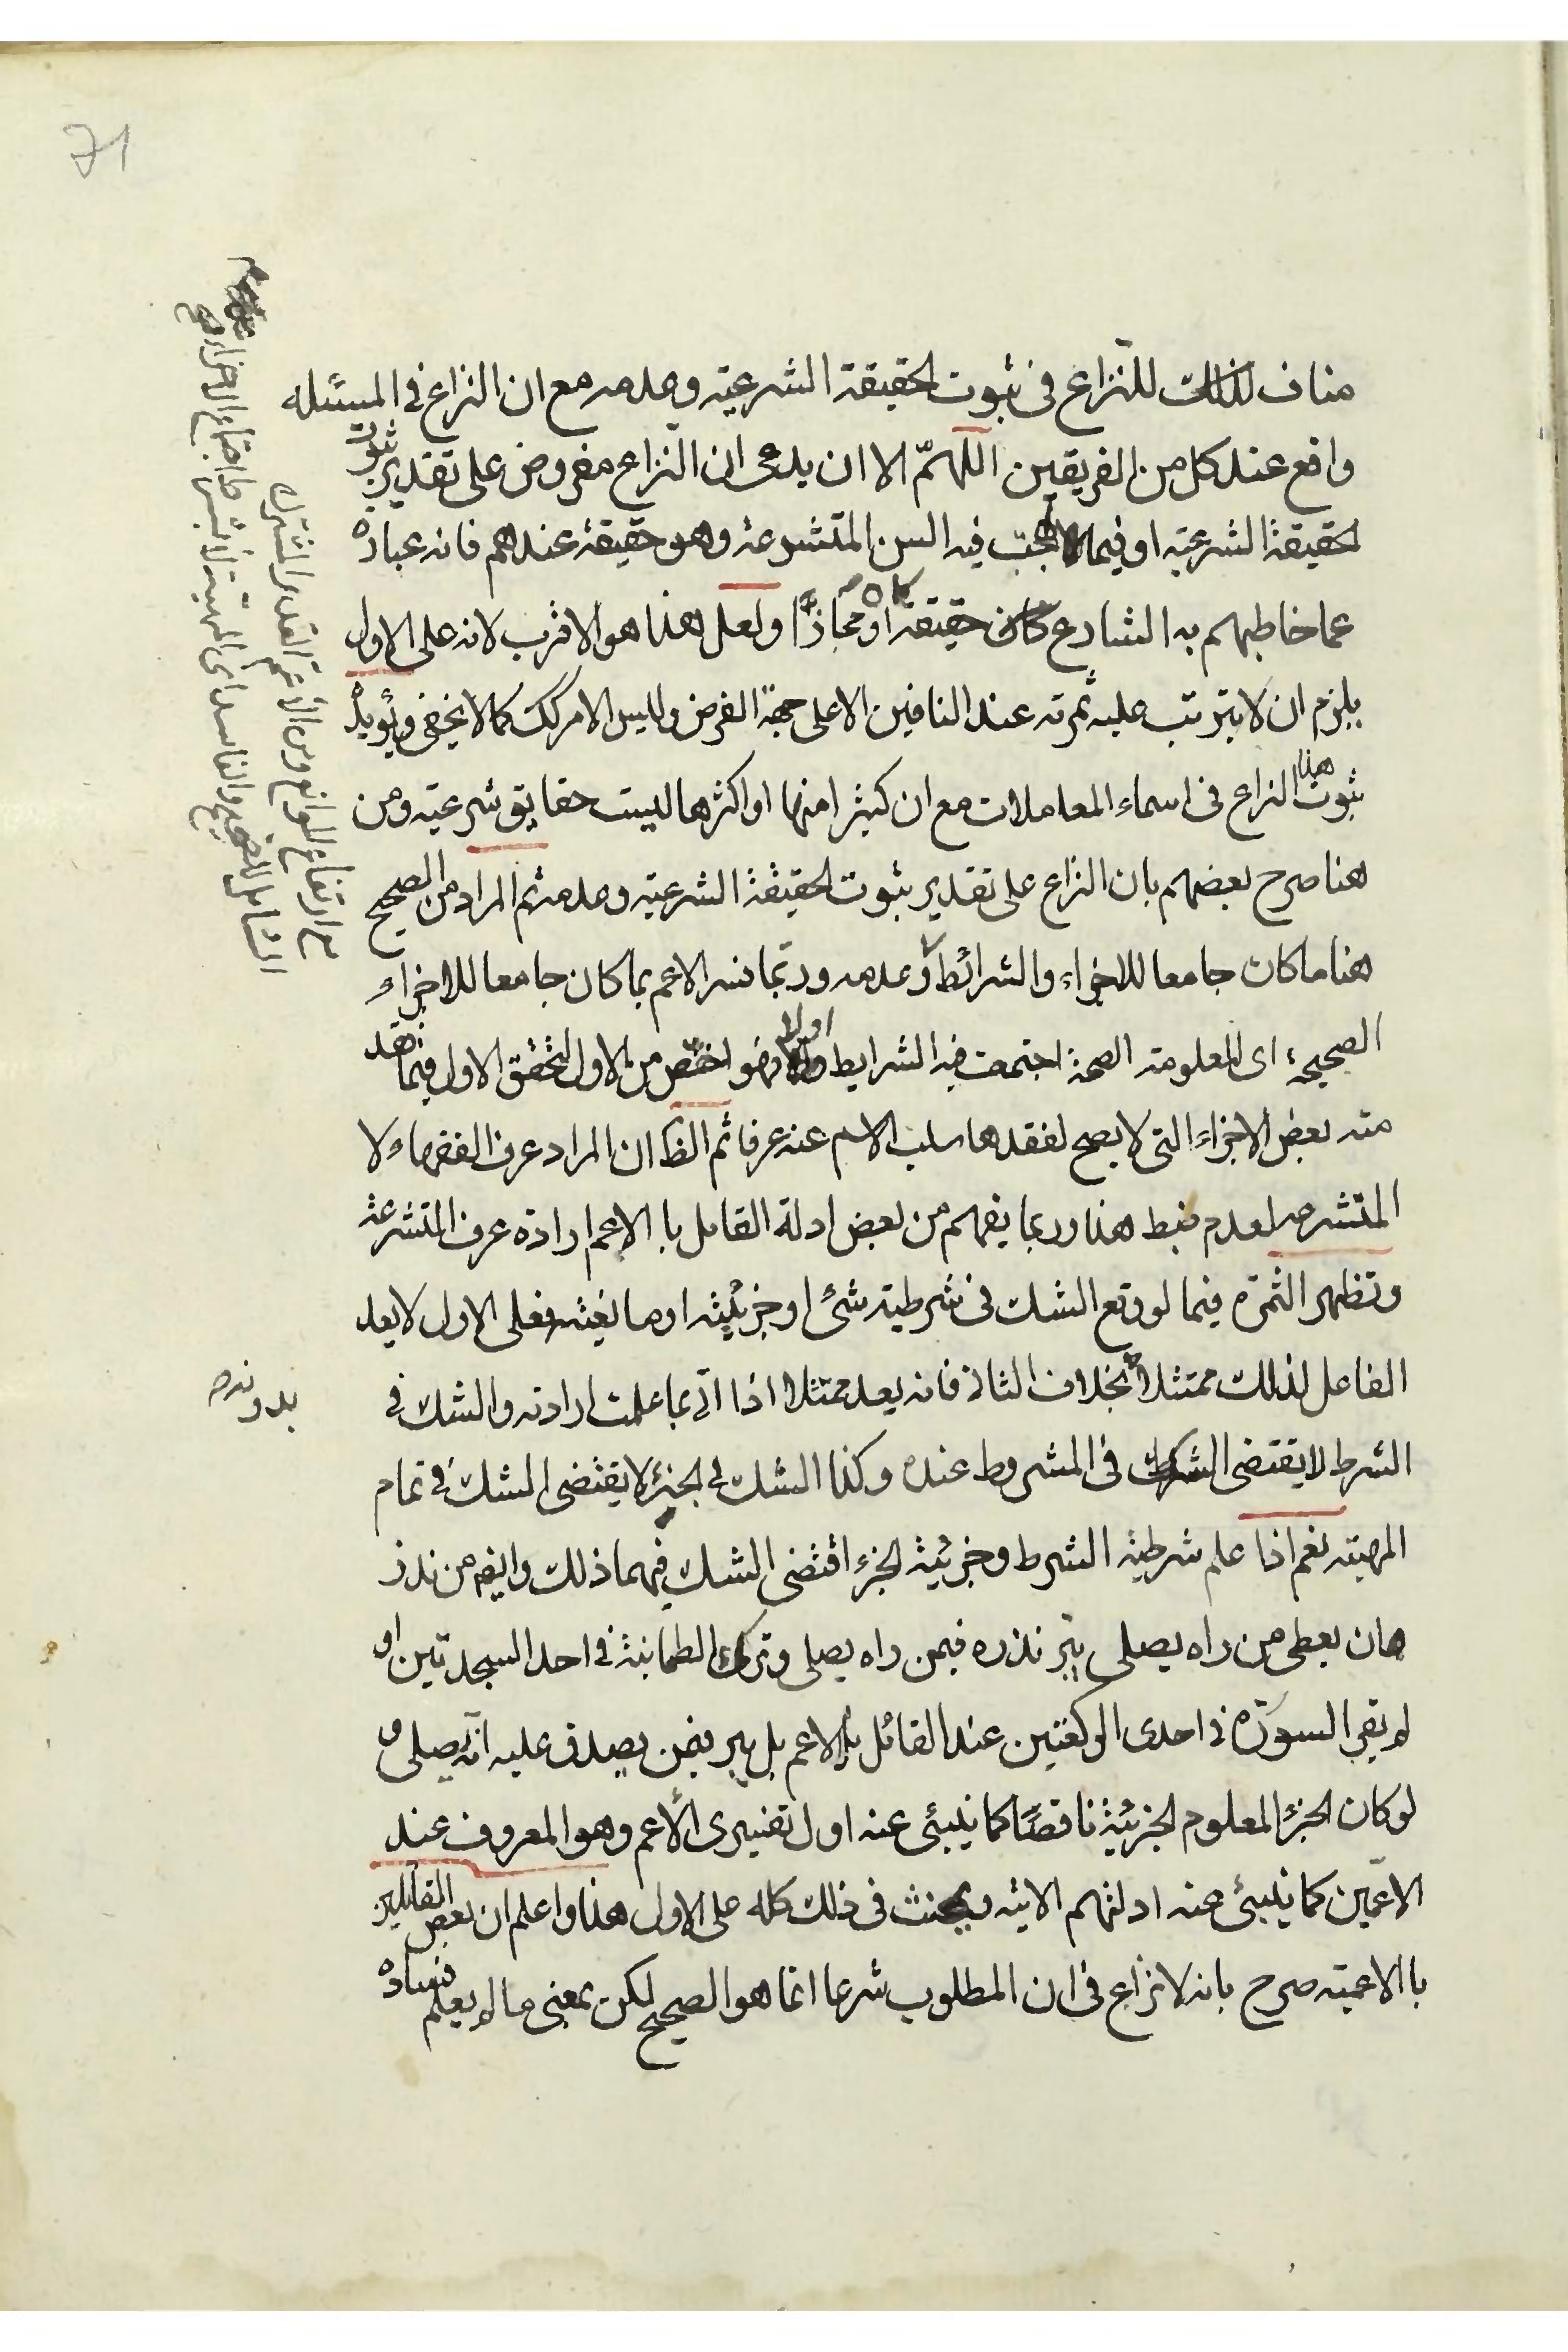 71
مناف لذلك للنزاع فى ثبوت الحقيقة الشرعية وعدمه مع ان النزاع فى المسئله
واقع عند كل من الفريقين اللهمّ الا ان يدعى ان النزاع مفروض على تقدير ثبوت
الحقيقة الشرعية او فيما فيه السن المتشرعة وهو حقيقة عندهم فانه عبارة
عما خاطبهم به الشارع كان حقيقة او مجازا ولعل هذا هو الاقرب لانه على الاول
يلزم ان لا يترتب عليه ثمرته عند النافين الا على جهة الفرض وليس الامر كك كما لا يخفى ويؤيده
ثبوت هذا النزاع فى اسماء المعاملات مع ان كثيرا منها او اكثرها ليست حقايق شرعية ومن
هنا صرح بعضهم بان النزاع على تقدير ثبوت الحقيقة الشرعية وعدمه ثم المراد من الصحيح
هنا ما كان جامعا للاجزاء والشرائط وعدمه وربما فسر الاعم بما كان جامعا للاجزاء
الصحيحة اى المعلومة الصحة اجتمعت فيه الشرايط اولا وهو اخص من الاول لتحقق الاول فيما فقد
منه بعض الاجزاء التى لا يصح لفقدها سلب الاسم عنه عرفا ثم الظ ان المراد عرف الفقهاء لا
المتشرعه لعدم ضبط هذا وربما يفهم من بعض ادلة القايل با الاعم ارادة عرف المتشرعة
وتظهر الثمرة فيما لو وقع الشك فى شرطية شئ او جزئيته او مانعيته فعلى الاول لا يعد
الفاعل لذلك ممتثلا بخلاف الثانى فانه يعد ممتثلا اذا اتى بما علمت ارادته والشك فى
الشرط لا يقتضى الشك فى المشروط عنده وكذا الشك فى الجزء لا يقتضى الشك فى تمام
المهية نعم اذا علم شرطية الشرط وجزئية الجزء اقتضى الشك فيهما ذلك وايضم من نذر
ان يعطى من راه يصلى يبر نذره فيمن راه يصلى وترك الطمانينة فى احد السجدتين او
لم يقرء السورة فى احدى الركعتين عند القائل بالاعم بل يبر فيمن يصدق عليه انه يصلى و
لو كان الجزء المعلوم الجزئية ناقصا كما ينبئى عنه اول تفسيرى الاعم وهو المعروف عند
الاعميين كما ينبئى عنه ادلتهم الاتية ويحنث فى ذلك كله على الاول هذا واعلم ان بعض القائلين
با الاعمية صرح بانه لا نزاع فى ان المطلوب شرعا انما هو الصحيح لكن بمعنى ما لم يعلم فساده
مع ارتفاع الموانع ومن الاعم القدر المشترك
الشامل للصحيح والفاسد اى المهية لا بشرط اجتماع الاجزاء
بدونه